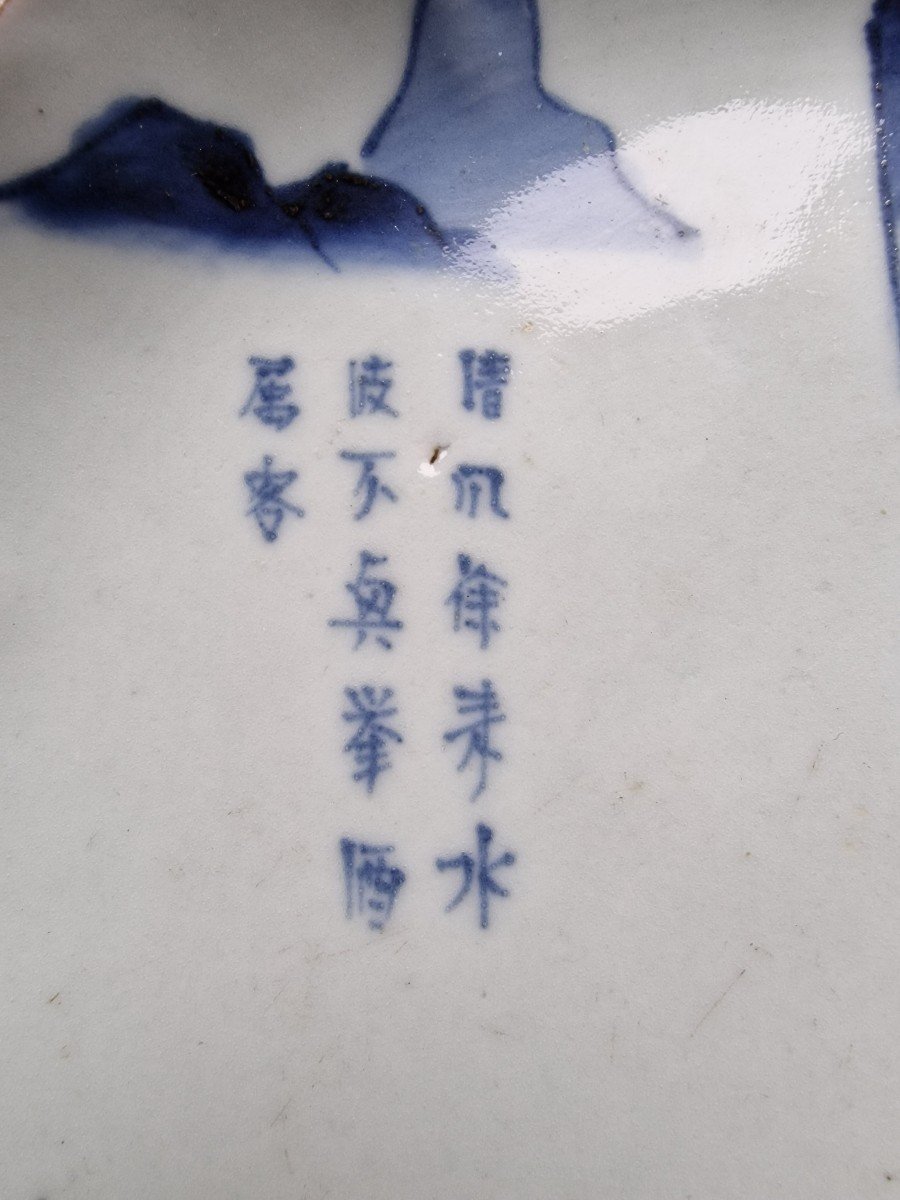 清风徐来水
波不興举酒
属客